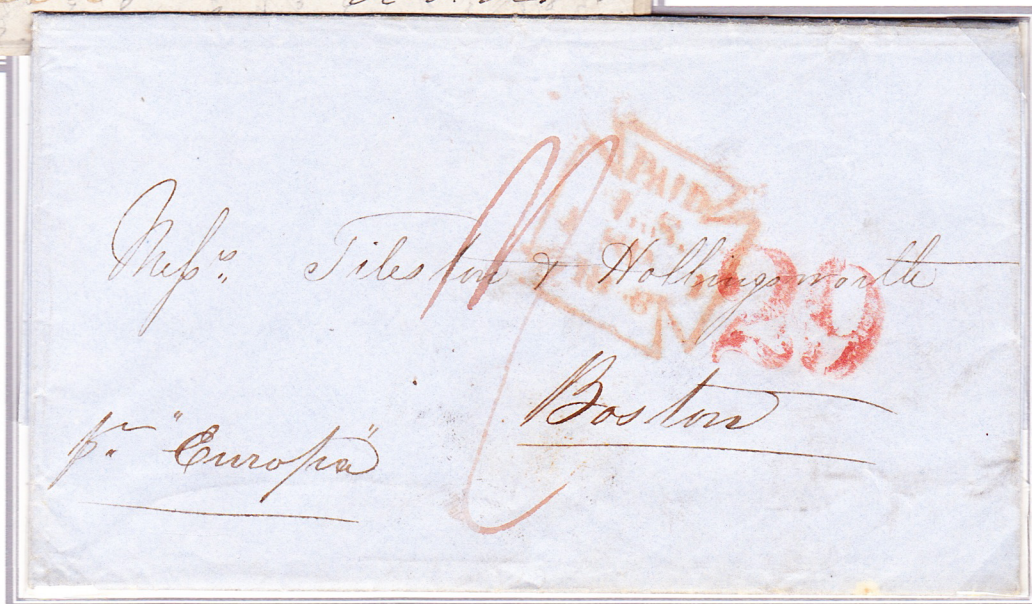 PAID
Mefsrs. Tileston & Hollingsworth
29
Boston
pr. "Europa"